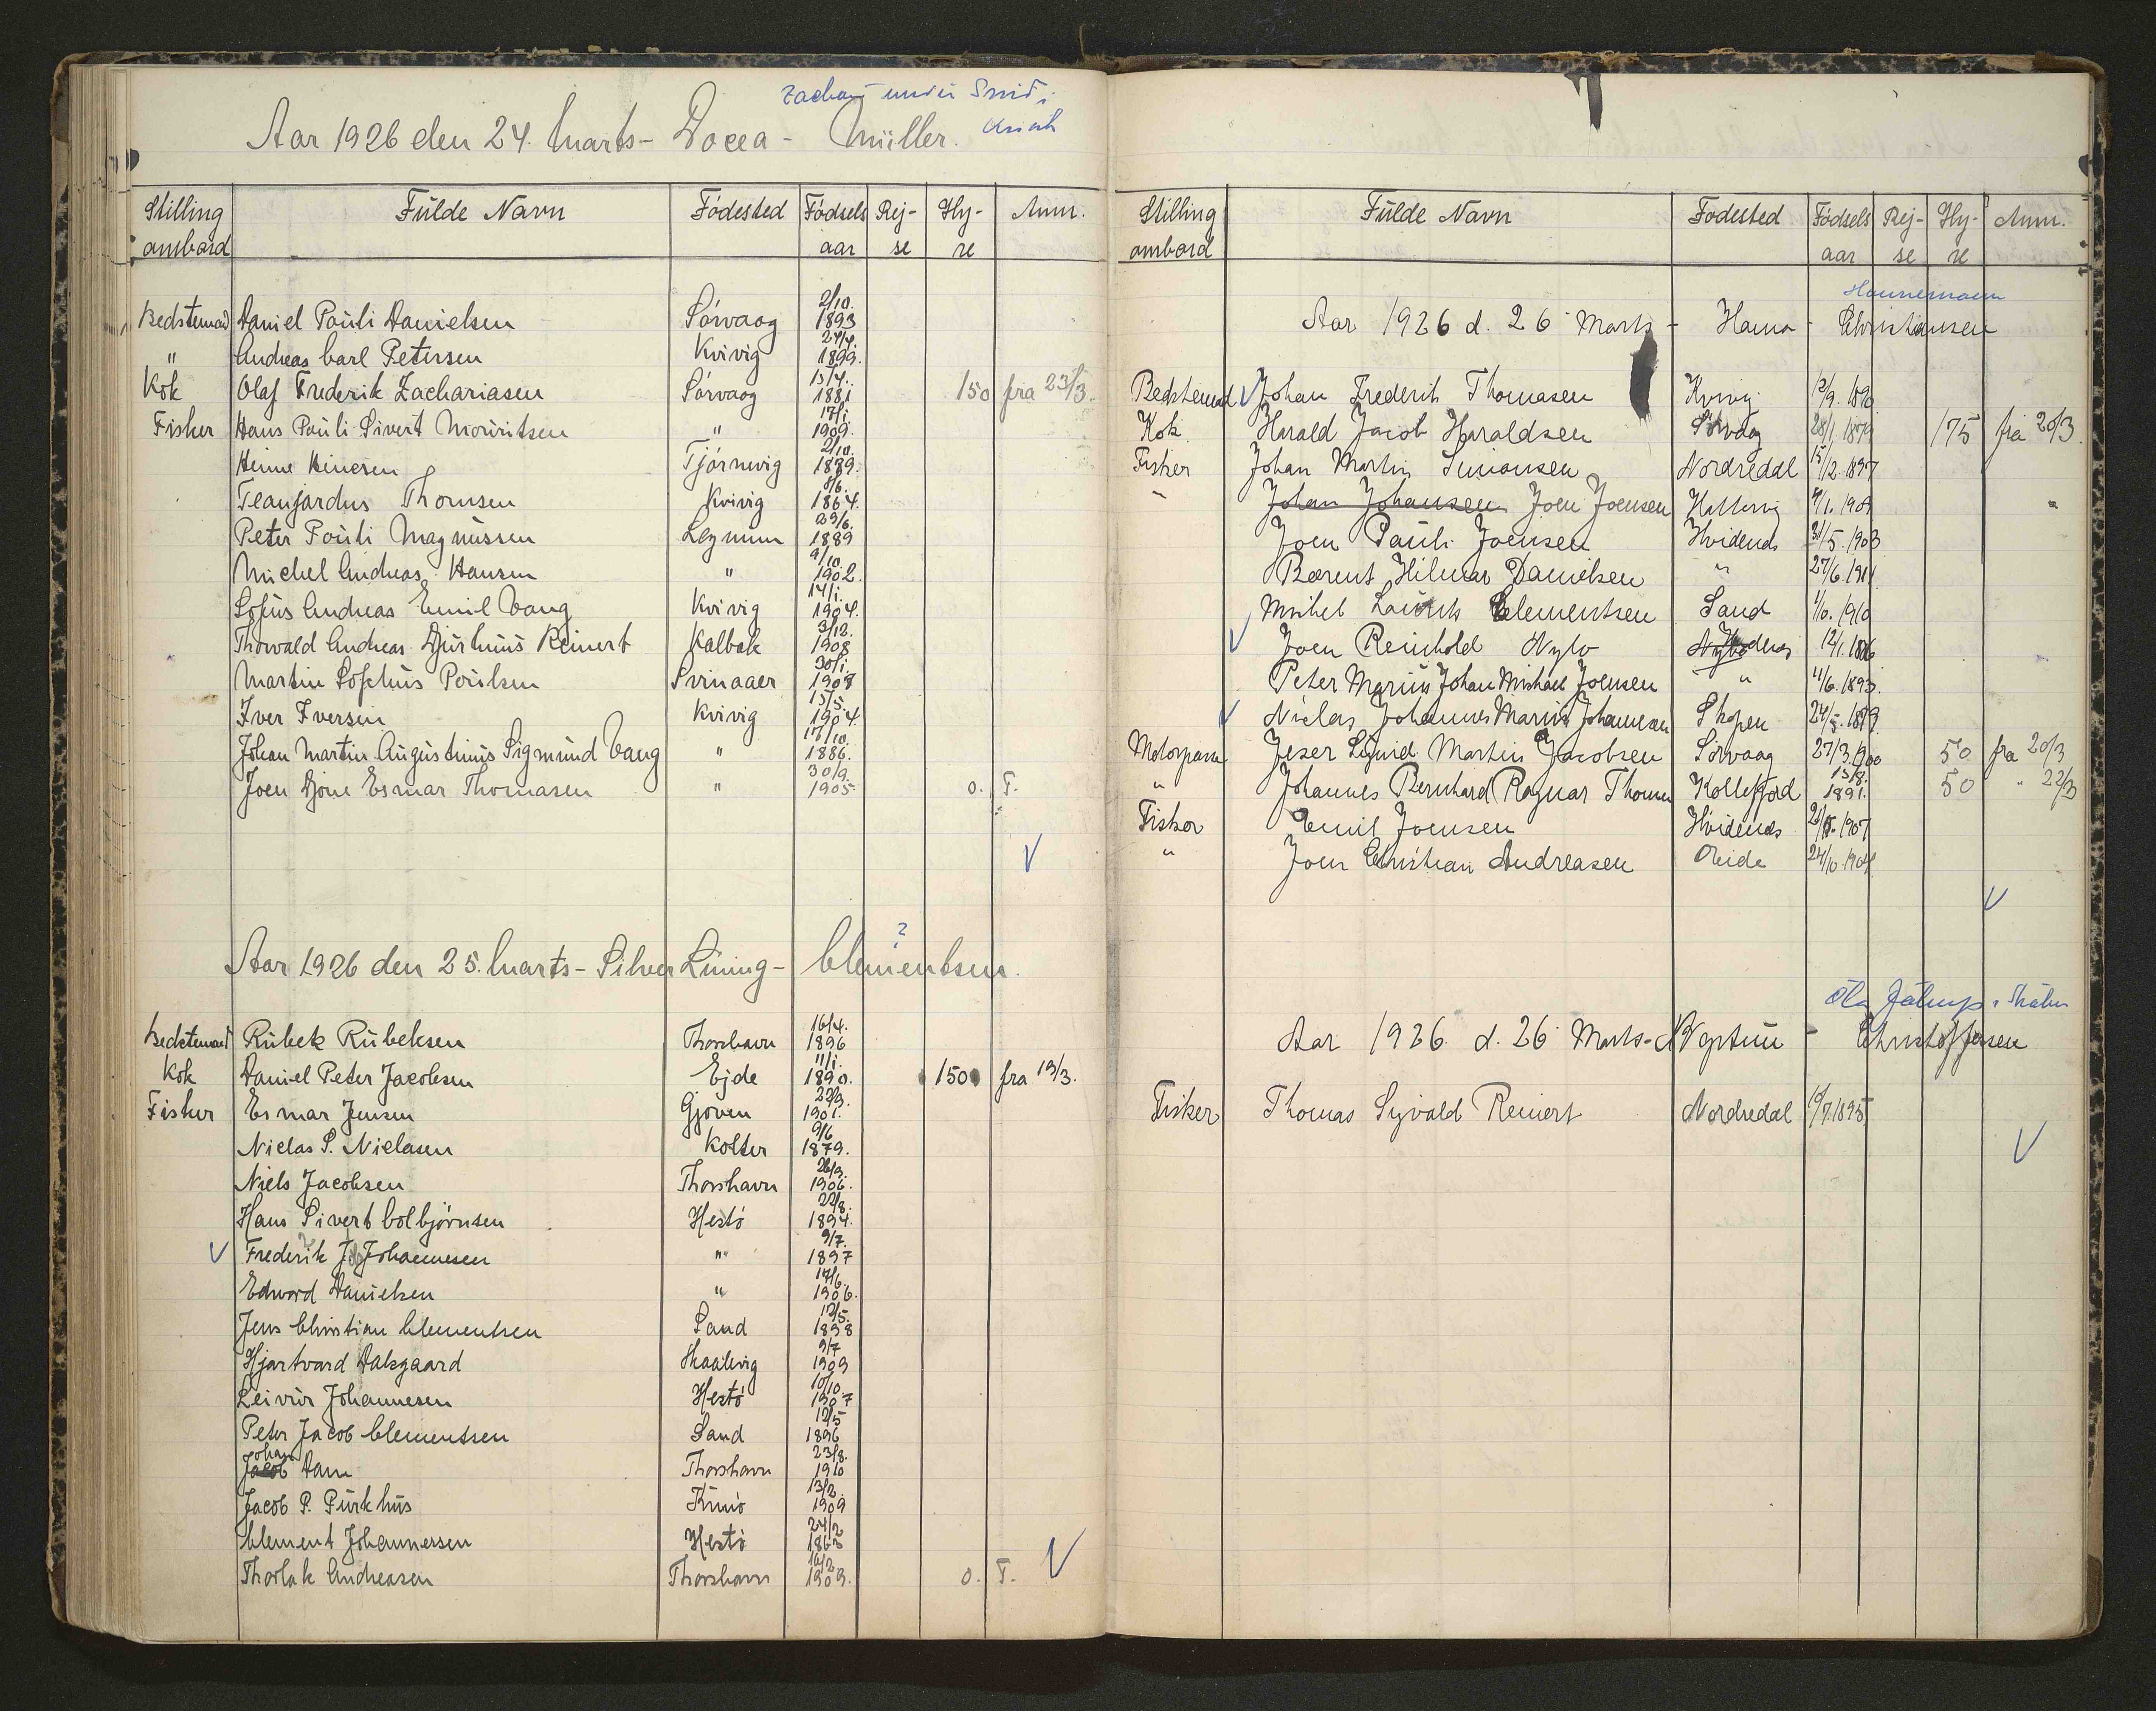 Aar 1926 den 24. Marts - Docea - Müller.
Stilling ombord Fulde Navn Födested Födsels aar Rej- se Hy- re Anm.
Bedstemand Daniel Pauli Danielsen Sórvaag 2/10. 1893
" Andreas Carl Petersen Kvivig 24/4. 1899.
Kok Olaf Frederik Zachariasen Sórvaag 15/4. 1881 150 fra 23/3.
Fisker Hans Pauli Sivert Mouritsen " 17/1. 1909.
Heine Heinesen Tjórnevig 2/10. 1889.
Thomsen Kvivig 8/6. 1864.
Peter Pauli Magnussen Leynum 29/6. 1889
Michel Andreas Hansen " 9/10. 1902.
Sofus Andreas Emil Vang Kvivig 14/1. 1904.
Thorvald Andreas Djurhuus Reinert Kalbak 3/12. 1908
Martin Sophus Poulsen Svinaaer 30/1. 1908
Iver Iversen Kvivig 15/5. 1904.
Johan Martin Augustinus Sigmund Vang " 17/10. 1886.
Joen Djone Esmar Thomasen " 30/9. 1905 0. T.
V
Aar 1926 den 25. Marts - Silver Lining - Clementsen. ?
Bedstemand Rubek Rubeksen Thorshavn 16/4. 1896
Kok Daniel Peter Jacobsen Ejde 11/1. 1890. 150 fra 19/3.
Fisker Esmar Jensen Gjoven 29/9. 1901.
Niclas P. Niclasen Kolter 9/6 1879.
Niels Jacobsen Thorshavn 26/9. 1906.
Hans Sivert Colbjörnsen Hestö 22/8. 1894.
V Frederik J. Johannesen " 9/7. 1897
Edvard Danielsen " 17/6. 1906.
Jens Christian Clementsen Sand 12/5. 1898
Hjartvard Dalsgaard Skaalevig 9/7 1909
Leivur Johannesen Hestö 10/10. 1907
Peter Jacob Clementsen Sand 12/5 1896
Johan
Jacob Dam Thorshavn 23/8. 1910
Jacob P. Purkhus Kunö 13/2. 1909
Clement Johannessen Hestö 24/2 1863
Thorlak Andreasen Thorshavn 16/2 1909. 0. T. V
Stilling ombord Fulde Navn Fodested Födsels aar Rej- se Hy- re Anm.
Hannemann
Aar 1926 d. 26 Marts - Hama - Christiansen
Bedstemand V Johan Frederik Thomasen Kvivig 12/9. 1890
Kok Harald Jacob Haraldsen Sörvaag 28/1. 1879 175 fra 20/3.
Fisker Johan Martin Simonsen Nordredal 15/2. 1897
" Johan Johansen Joen Joensen Hattervig 9/1. 1909 "
Joen Pauli Joensen Hvidenæs 30/5. 1903
Bærent Hilmar Danielsen " 27/6. 1911
Michel Laurits Clementsen Sand 1/10. 1910
V Joen Reinhold Nybo 12/1. 1886
Peter Marius Johan Michael Joensen " 11/6. 1893.
V Niclas Johannes Marius Johannesen Skopen 24/5. 1879.
Motorpasser Jeser Sigurd Martin Jacobsen Sörvaag 27/3. 1900 50 fra 20/3
" Johannes Bernhard Ragnar Thomsen Kollefjord 15/8. 1891. 50 " 22/3
Fisker Emil Joensen Hvidenæs 1907
" Joen Christian Andreasen Oeide 24/10. 1904
V
Aar 1926 d. 26 Marts - Neptun - Christoffersen
Fisker Thomas Syvald Reinert Nordredal 10/7. 1895
V